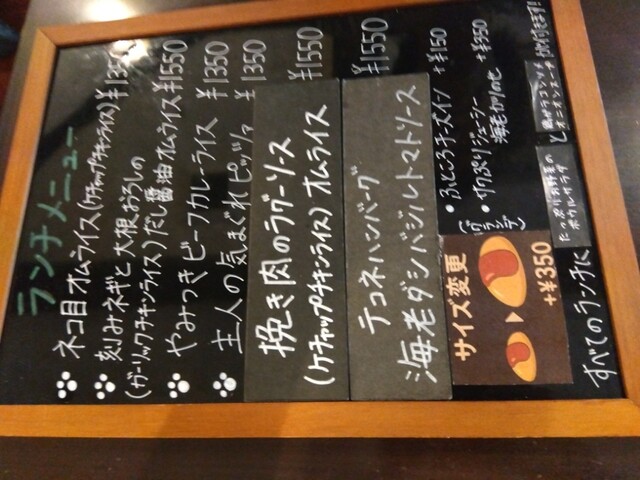 ランチメニュー
ネコ目オムライス(ケチャップチキンライス)¥1350
刻みネギと大根おろしの
(ガーリックチキンライス)だし醤油オムライス¥1550
やみつきビーフカレーライス ¥1350
主人の気まぐれピッツァ ¥1350
挽き肉のラグーソース ¥1550
(ケチャップチキンライス)オムライス
テュネハンバーグ ¥1550
海老ダシバジルトマトソース
・ふところチーズイン +¥150
・ザクぷりジューシー +¥350
海老カツのせ
サイズ変更
+¥350
すべてのランチに
たっぷりお野菜の
ボウルサラダ
と
オニオンスープ
が付きます!